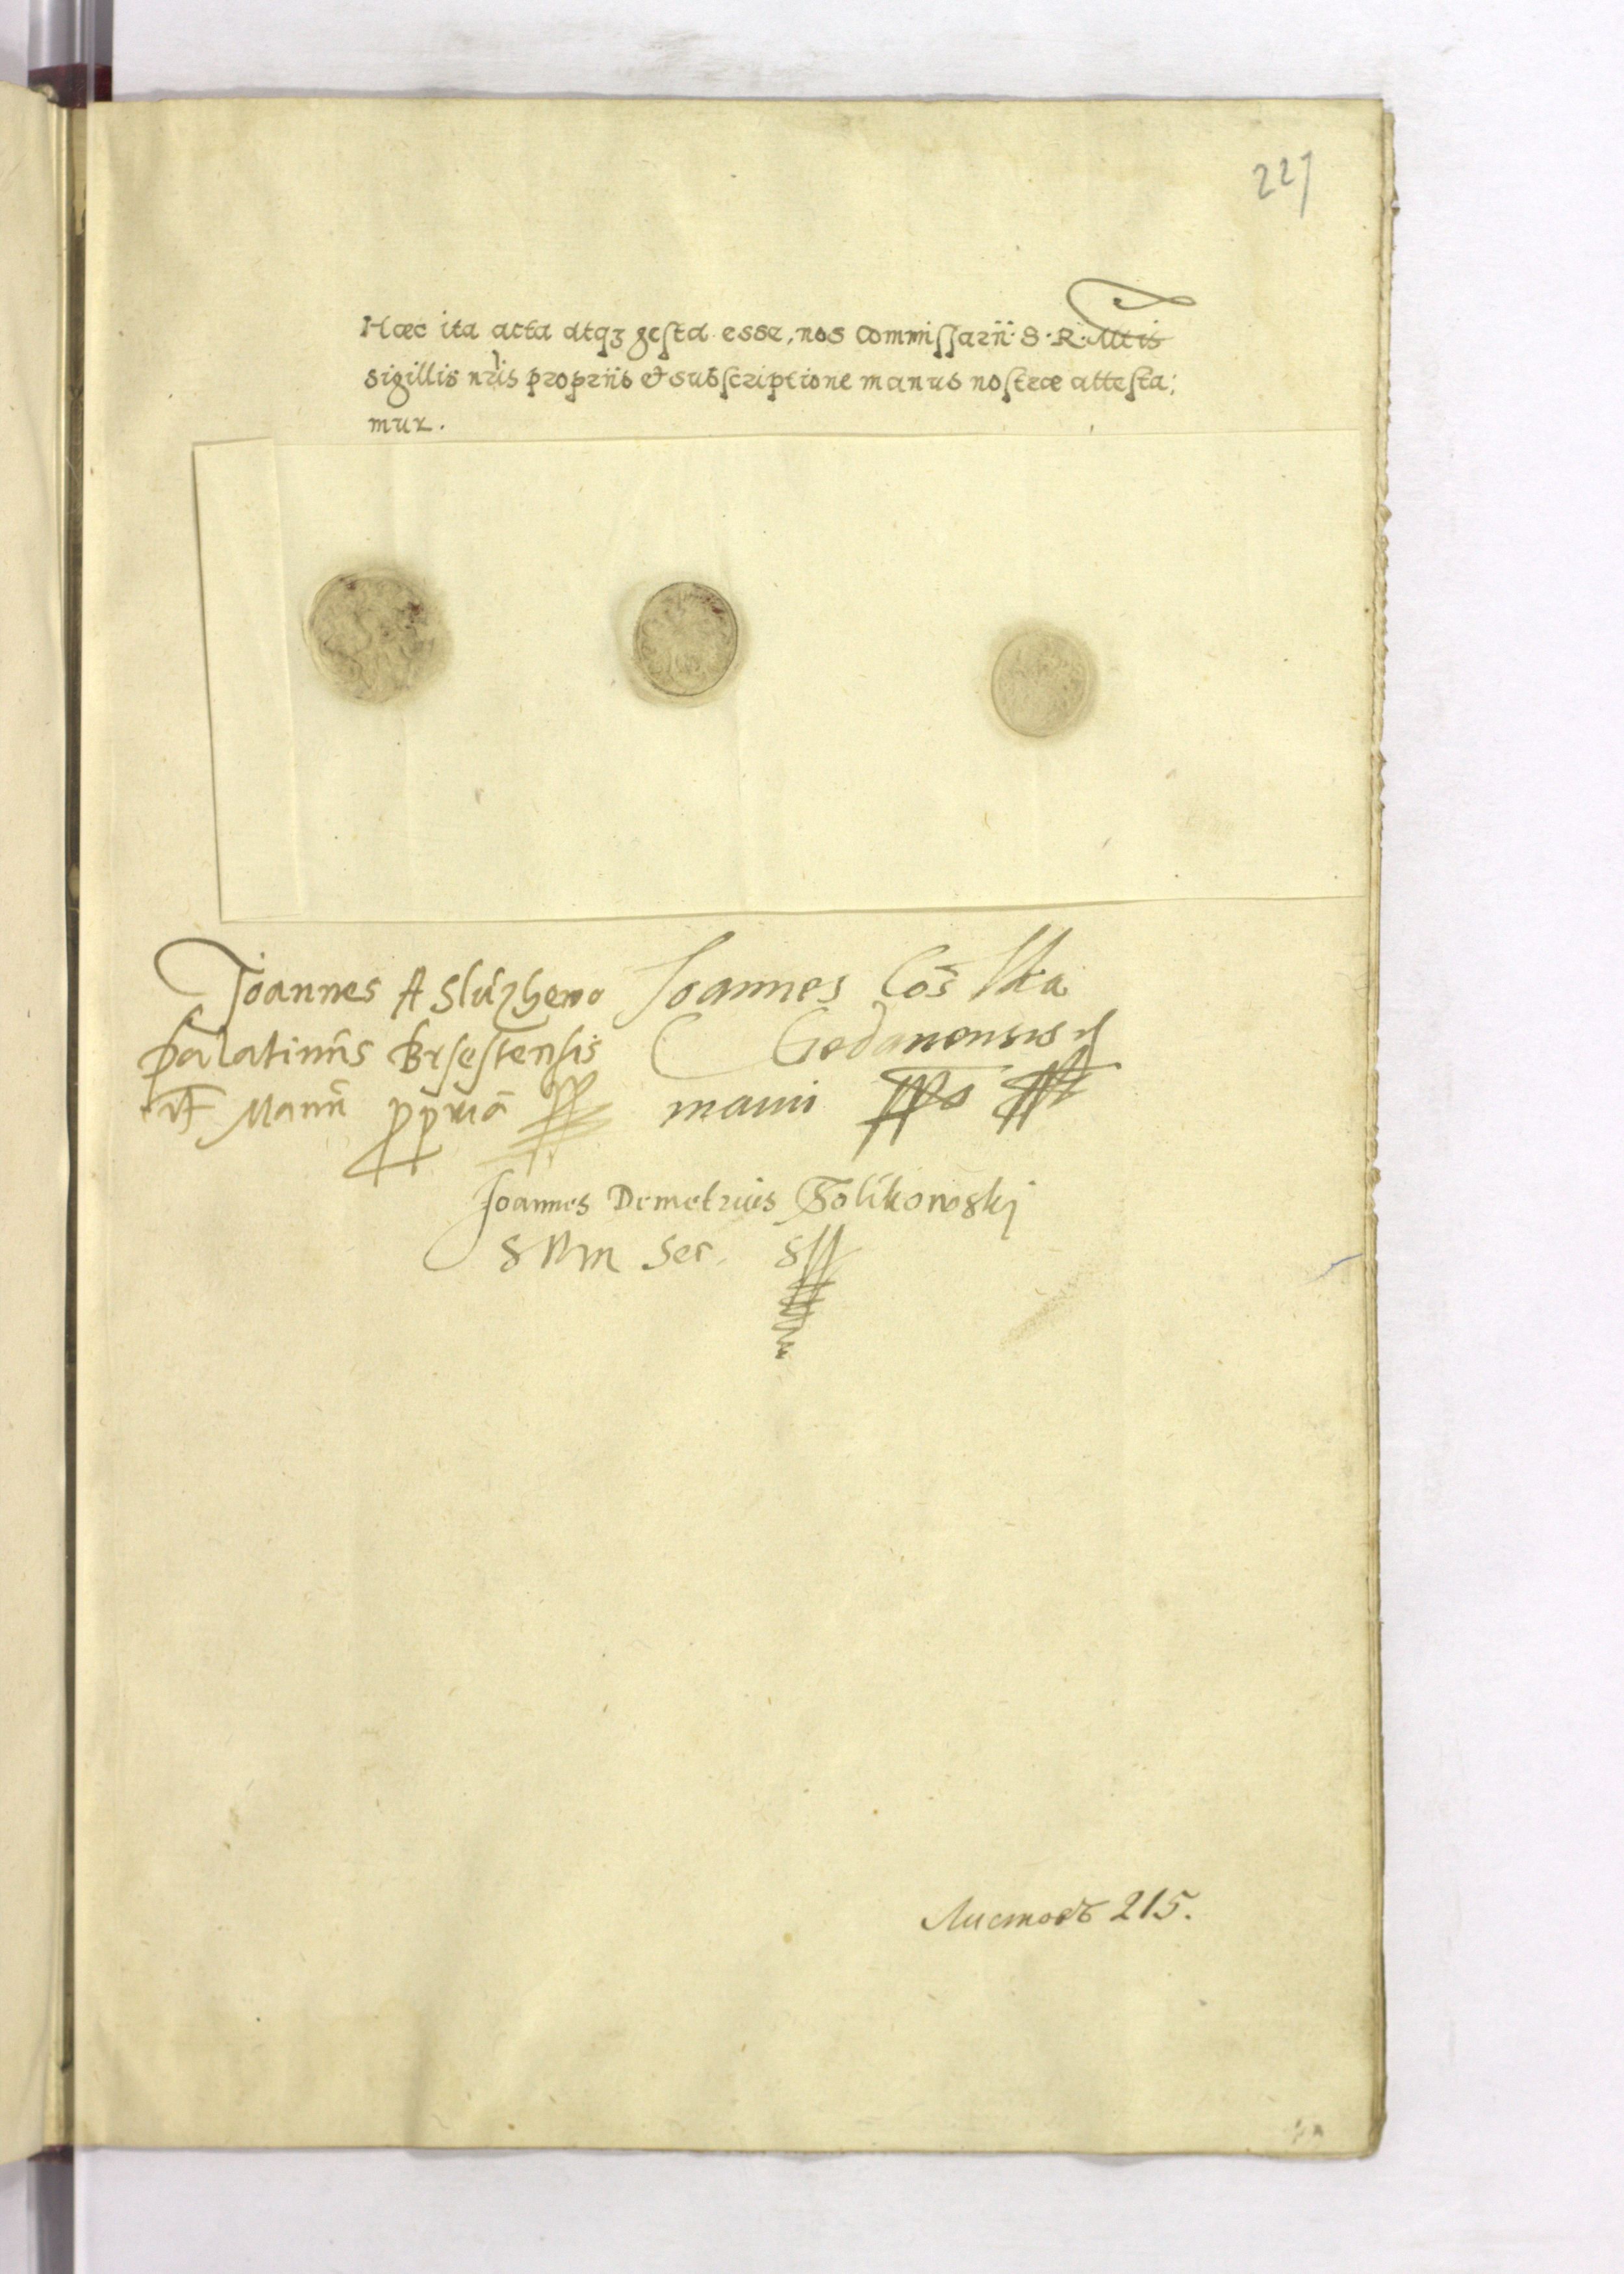 227
Hæc ita acta atqȝ gesta esse, nos Commissarii S. R. Mtis
sigillis nris propriis & subscriptione manus nostræ attesta:
mur.
Joannes A Sluzhewo
palatinus Brsestensis
Manu ppria
Joannes Cos ſtka
C Gedanensis
manu ppa
Joannes Demetrius Solikowskj
S R M Sec. sst
Листовъ 215.